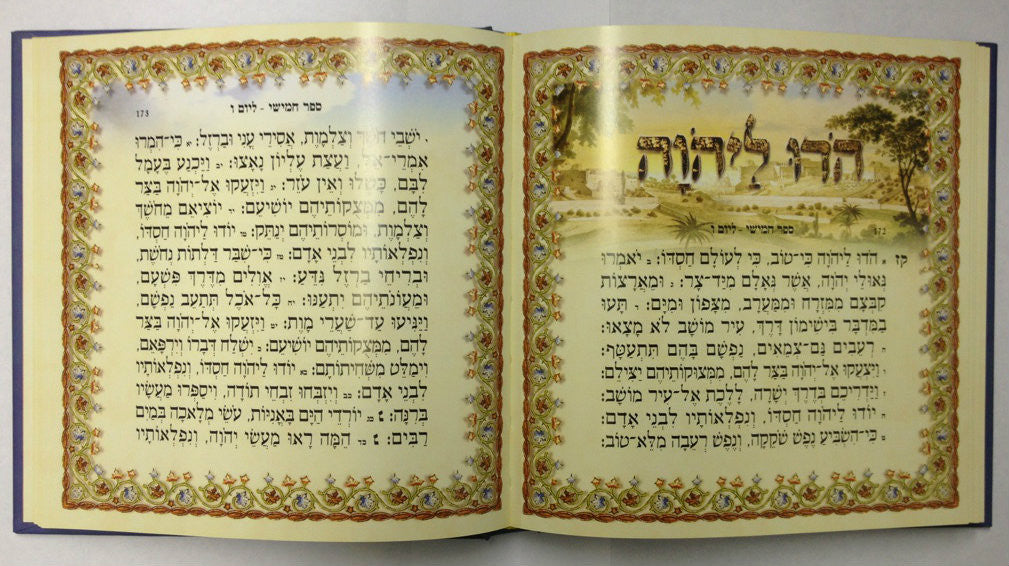 הֹדוּ לַיהֹוָה
172 ספר חמישי - ליום ו
קז א הֹדוּ לַיהֹוָה כִּי־טוֹב, כִּי לְעוֹלָם חַסְדּוֹ: ב יֹאמְרוּ
גְּאוּלֵי יְהֹוָה, אֲשֶׁר גְּאָלָם מִיַּד־צָר: ג וּמֵאֲרָצוֹת
קִבְּצָם מִמִּזְרָח וּמִמַּעֲרָב, מִצָּפוֹן וּמִיָּם: ד תָּעוּ
בַמִּדְבָּר בִּישִׁימוֹן דָּרֶךְ, עִיר מוֹשָׁב לֹא מָצָאוּ:
ה רְעֵבִים גַּם־צְמֵאִים, נַפְשָׁם בָּהֶם תִּתְעַטָּף:
ו וַיִּצְעֲקוּ אֶל־יְהֹוָה בַּצַּר לָהֶם, מִמְּצוּקוֹתֵיהֶם יַצִּילֵם:
ז וַיַּדְרִיכֵם בְּדֶרֶךְ יְשָׁרָה, לָלֶכֶת אֶל־עִיר מוֹשָׁב:
ח יוֹדוּ לַיהֹוָה חַסְדּוֹ, וְנִפְלְאוֹתָיו לִבְנֵי אָדָם:
ט כִּי־הִשְׂבִּיעַ נֶפֶשׁ שֹׁקֵקָה, וְנֶפֶשׁ רְעֵבָה מִלֵּא־טוֹב:
ספר חמישי - ליום ו 173
י יֹשְׁבֵי חֹשֶׁךְ וְצַלְמָוֶת, אֲסִירֵי עֳנִי וּבַרְזֶל: יא כִּי־הִמְרוּ
אִמְרֵי־אֵל, וַעֲצַת עֶלְיוֹן נָאָצוּ: יב וַיַּכְנַע בֶּעָמָל
לִבָּם, כָּשְׁלוּ וְאֵין עֹזֵר: יג וַיִּזְעֲקוּ אֶל־יְהֹוָה בַּצַּר
לָהֶם, מִמְּצֻקוֹתֵיהֶם יוֹשִׁיעֵם: יד יוֹצִיאֵם מֵחֹשֶׁךְ
וְצַלְמָוֶת, וּמוֹסְרוֹתֵיהֶם יְנַתֵּק: טו יוֹדוּ לַיהֹוָה חַסְדּוֹ,
וְנִפְלְאוֹתָיו לִבְנֵי אָדָם: טז כִּי־שִׁבַּר דַּלְתוֹת נְחֹשֶׁת,
וּבְרִיחֵי בַרְזֶל גִּדֵּעַ: יז אֱוִלִים מִדֶּרֶךְ פִּשְׁעָם,
וּמֵעֲוֹנֹתֵיהֶם יִתְעַנּוּ: יח כָּל־אֹכֶל תְּתַעֵב נַפְשָׁם,
וַיַּגִּיעוּ עַד־שַׁעֲרֵי מָוֶת: יט וַיִּזְעֲקוּ אֶל־יְהֹוָה בַּצַּר
לָהֶם, מִמְּצֻקוֹתֵיהֶם יוֹשִׁיעֵם: כ יִשְׁלַח דְּבָרוֹ וְיִרְפָּאֵם,
וִימַלֵּט מִשְּׁחִיתוֹתָם: כא יוֹדוּ לַיהֹוָה חַסְדּוֹ, וְנִפְלְאוֹתָיו
לִבְנֵי אָדָם: כב וְיִזְבְּחוּ זִבְחֵי תוֹדָה, וִיסַפְּרוּ מַעֲשָׂיו
בְּרִנָּה: ׆ כג יוֹרְדֵי הַיָּם בָּאֳנִיּוֹת, עֹשֵׂי מְלָאכָה בְּמַיִם
רַבִּים: ׆ כד הֵמָּה רָאוּ מַעֲשֵׂי יְהֹוָה, וְנִפְלְאוֹתָיו